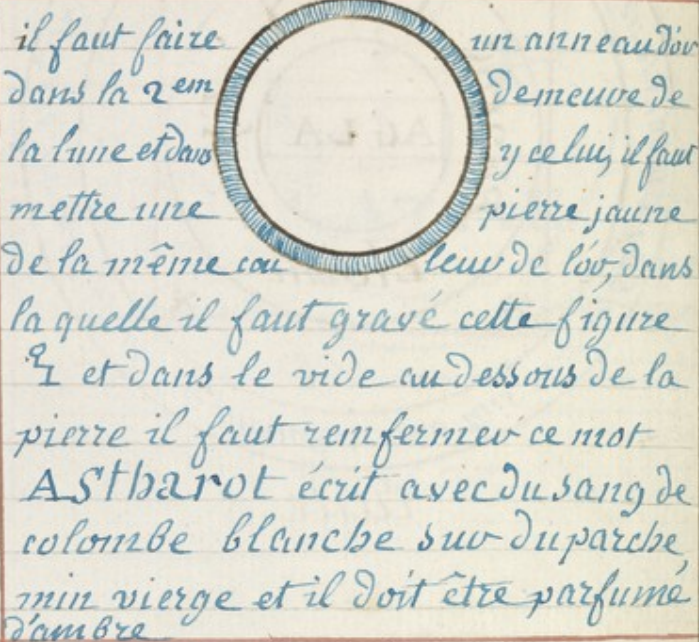 il faut faire un anneau d'or
dans la 2em demeure de
la lune et dans y celui, il faut
mettre une pierre jaune
de la même couleur de l'or, dans
la quelle il faut gravé cette figure
et dans le vide au dessous de la
pierre il faut remfermer ce mot
AStharot écrit avec du sang de
colombe blanche sur du parche,
min vierge et il doit être parfumé
d'ambre